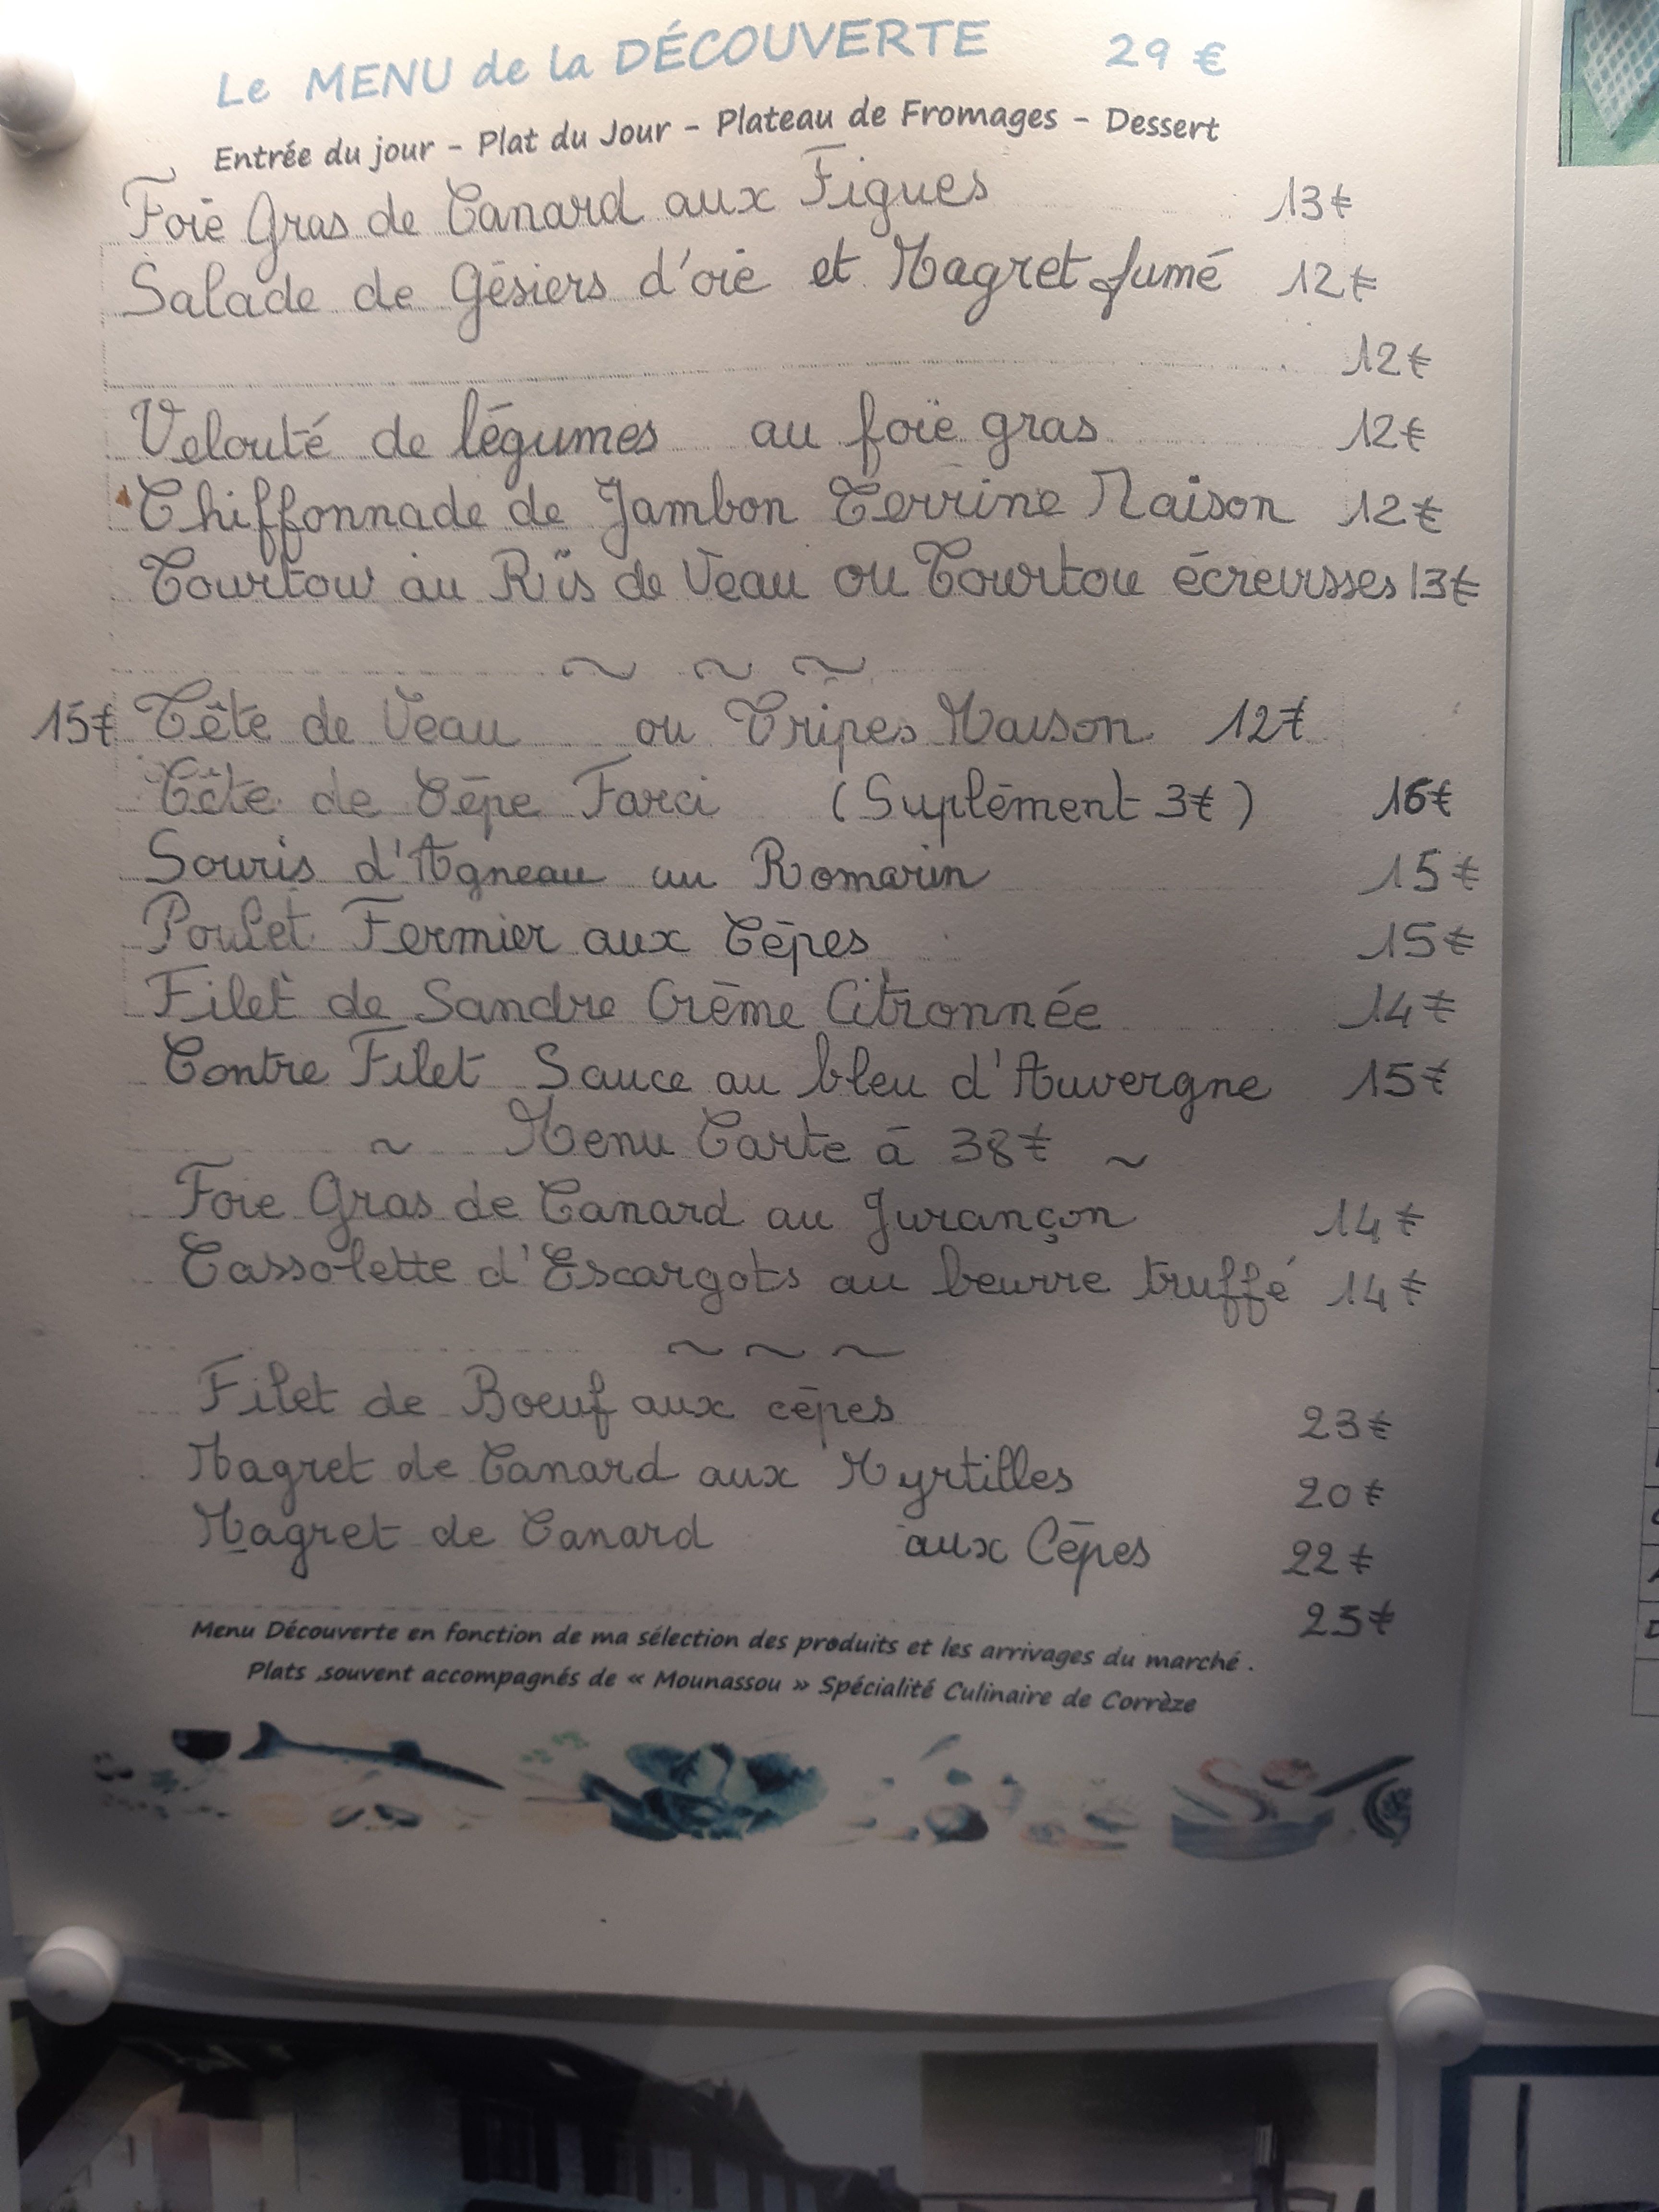 Le MENU de la DÉCOUVERTE 29 €
Entrée du jour - Plat du Jour - Plateau de Fromages - Dessert
Foie Gras de Canard aux Figues 13€
Salade de Gésiers d'oie et Magret fumé 12€
12€
Velouté de légumes au foie gras 12€
Chiffonnade de Jambon Terrine Maison 12€
Tourtou au Ris de Veau ou Tourtou écrevisses 13€
~ ~ ~
15€ Tête de Veau ou Tripes Maison 12€
Tête de Cèpe Farci (Suplément 3€) 16€
Souris d'Agneau au Romarin 15€
Poulet Fermier aux Cèpes 15€
Filet de Sandre Crème Citronnée 14€
Contre Filet Sauce au bleu d'Auvergne 15€
~ Menu Carte à 38€ ~
Foie Gras de Canard au Jurançon 14€
Cassolette d'Escargots au beurre truffé 14€
~ ~ ~
Filet de Boeuf aux cèpes 23€
Magret de Canard aux Myrtilles 20€
Magret de Canard aux Cèpes 22€
25€
Menu Découverte en fonction de ma sélection des produits et les arrivages du marché .
Plats ,souvent accompagnés de « Mounassou » Spécialité Culinaire de Corrèze